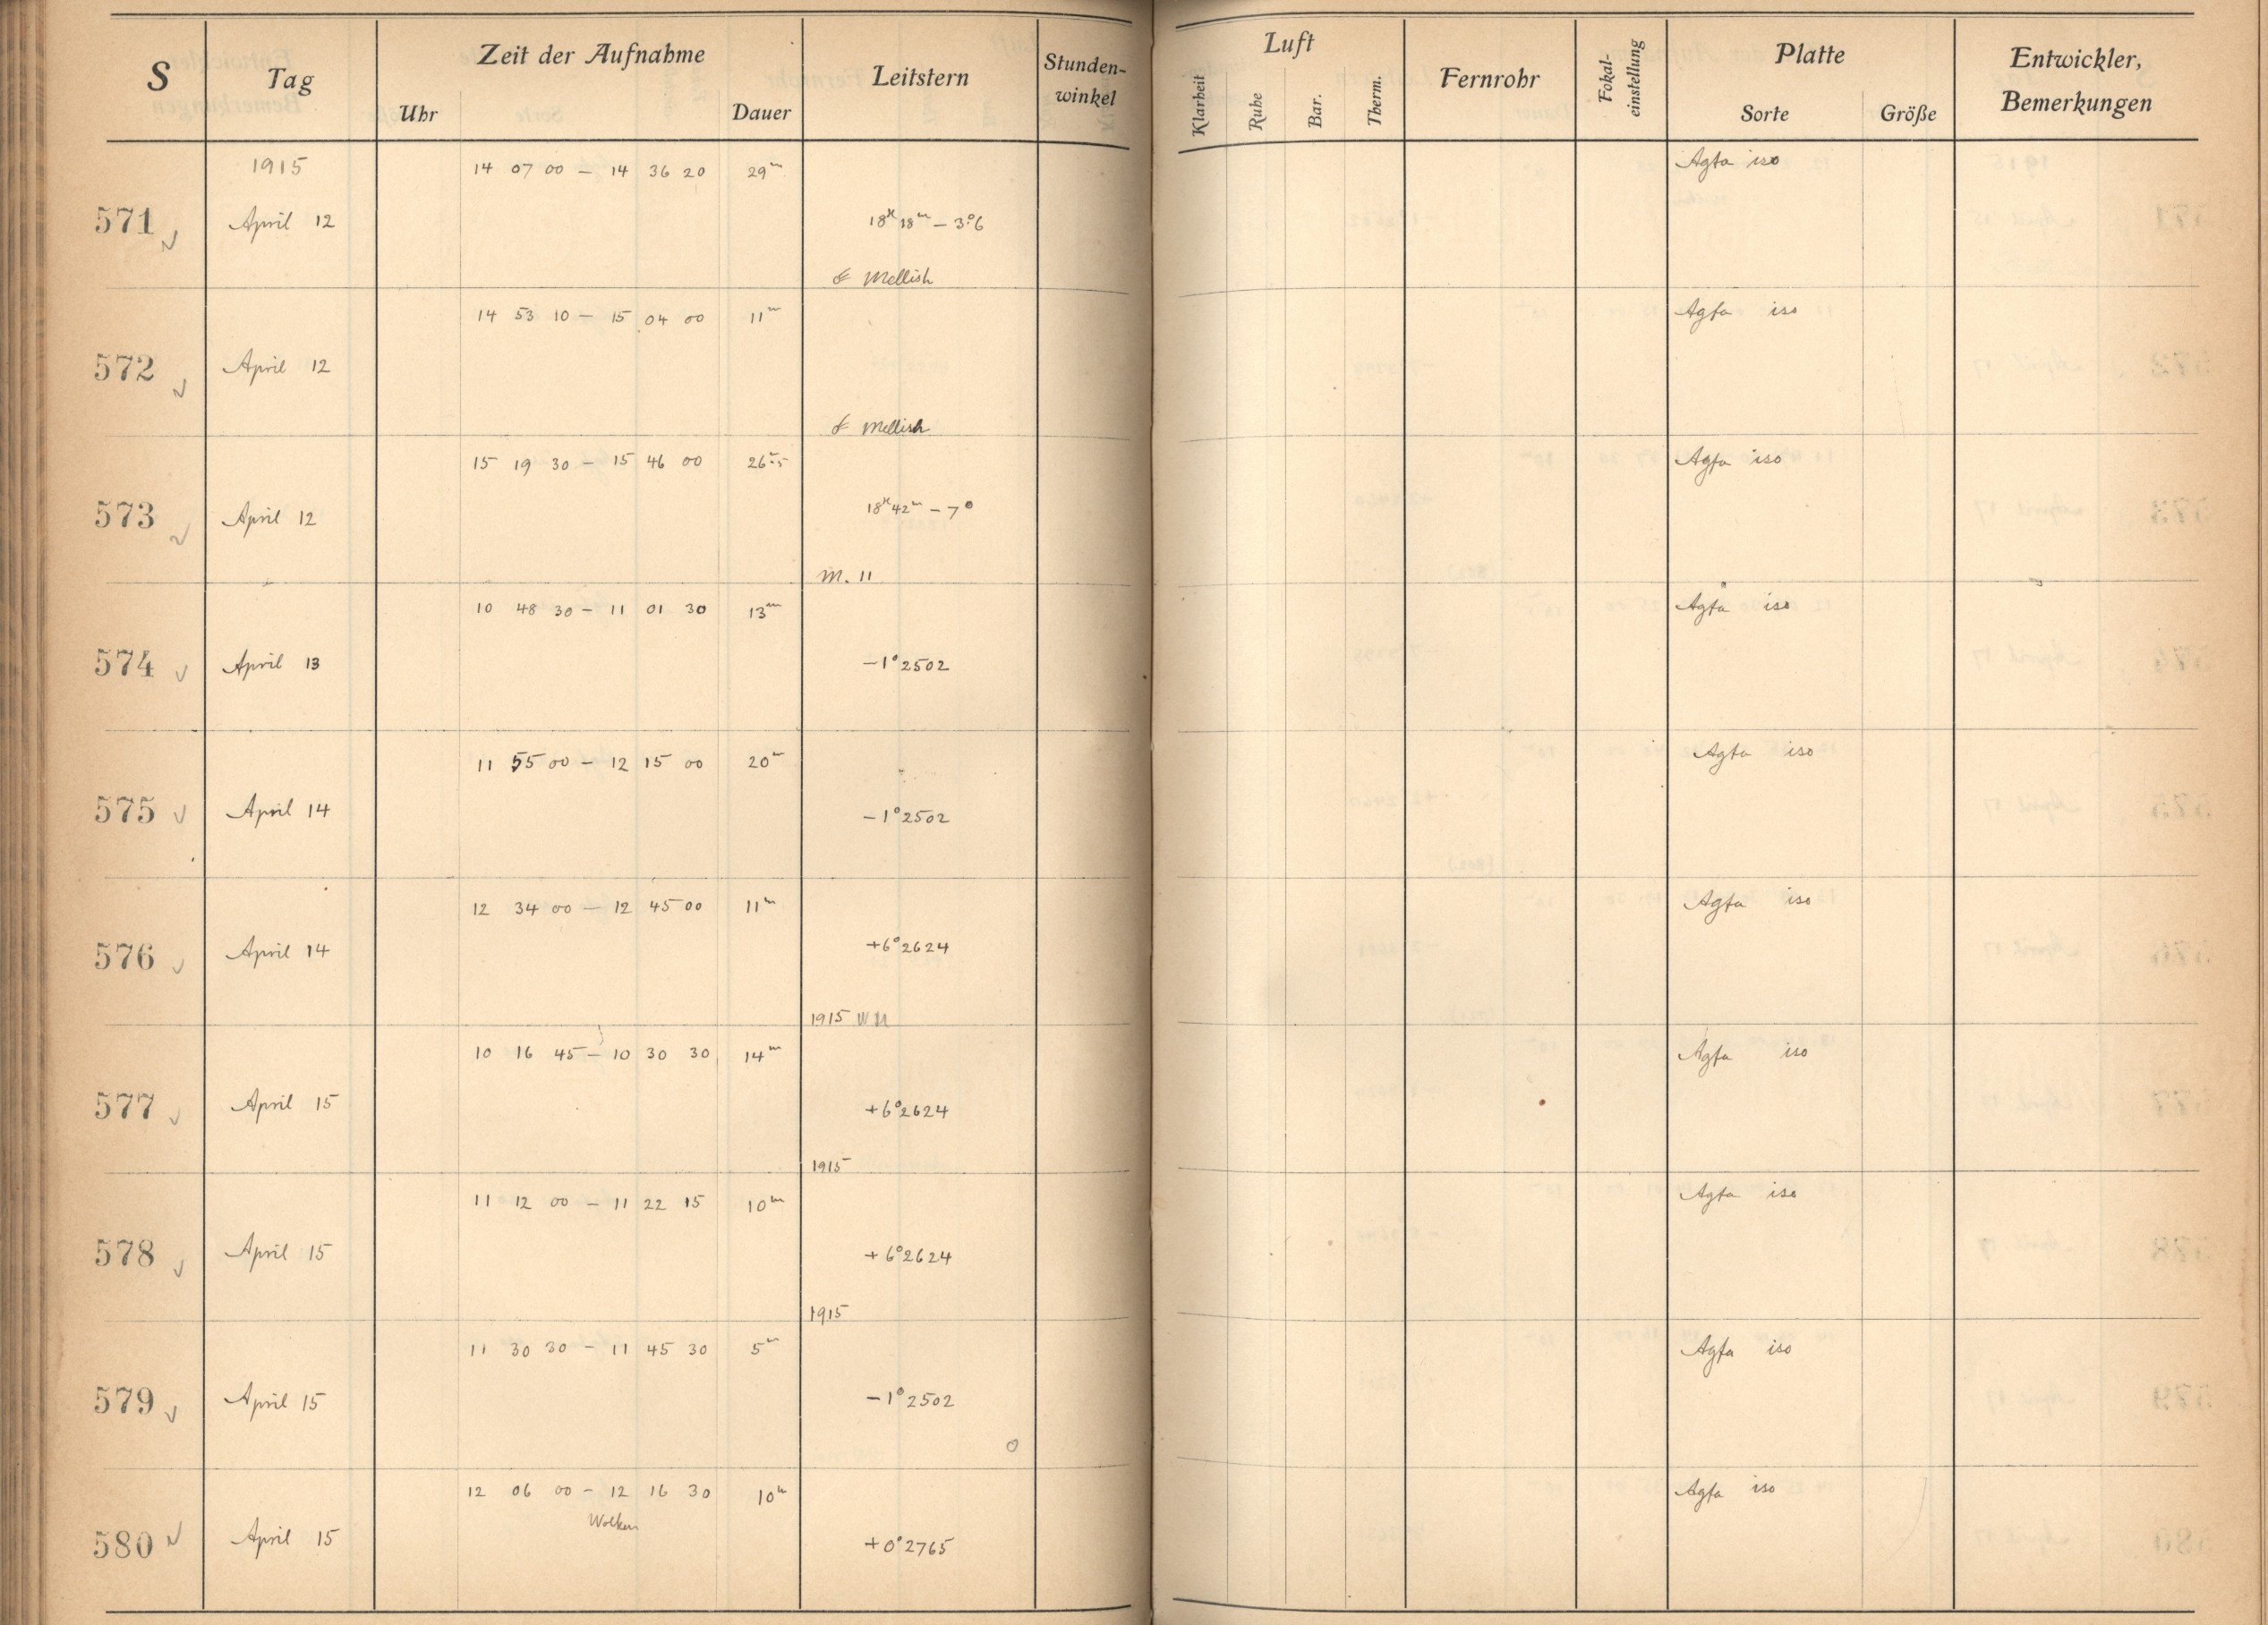 S Tag Zeit der Aufnahme Leitstern Stunden-winkel Luft Fernrohr Fokal-einstellung Platte Entwickler, Bemerkungen
Uhr Dauer Klarheit Ruhe Bar. Therm. Sorte Größe
1915 14 07 00 – 14 36 20 29m Agfa iso
571 April 12 18h 18m – 3°.6
Mellish
14 53 10 – 15 04 00 11m Agfa iso
572 April 12
Mellish
15 19 30 – 15 46 00 26m.5 Agfa iso
573 April 12 18h 42m – 7°
M. 11
10 48 30 – 11 01 30 13m Agfa iso
574 April 13 –1° 2502
11 55 00 – 12 15 00 20m Agfa iso
575 April 14 –1° 2502
12 34 00 – 12 45 00 11m Agfa iso
576 April 14 +6° 2624
1915
10 16 45 – 10 30 30 14m Agfa iso
577 April 15 +6° 2624
1915
11 12 00 – 11 22 15 10m Agfa iso
578 April 15 +6° 2624
1915
11 30 30 – 11 45 30 5m Agfa iso
579 April 15 –1° 2502
12 06 00 – 12 16 30 10m Agfa iso
Wolken
580 April 15 +0° 2765